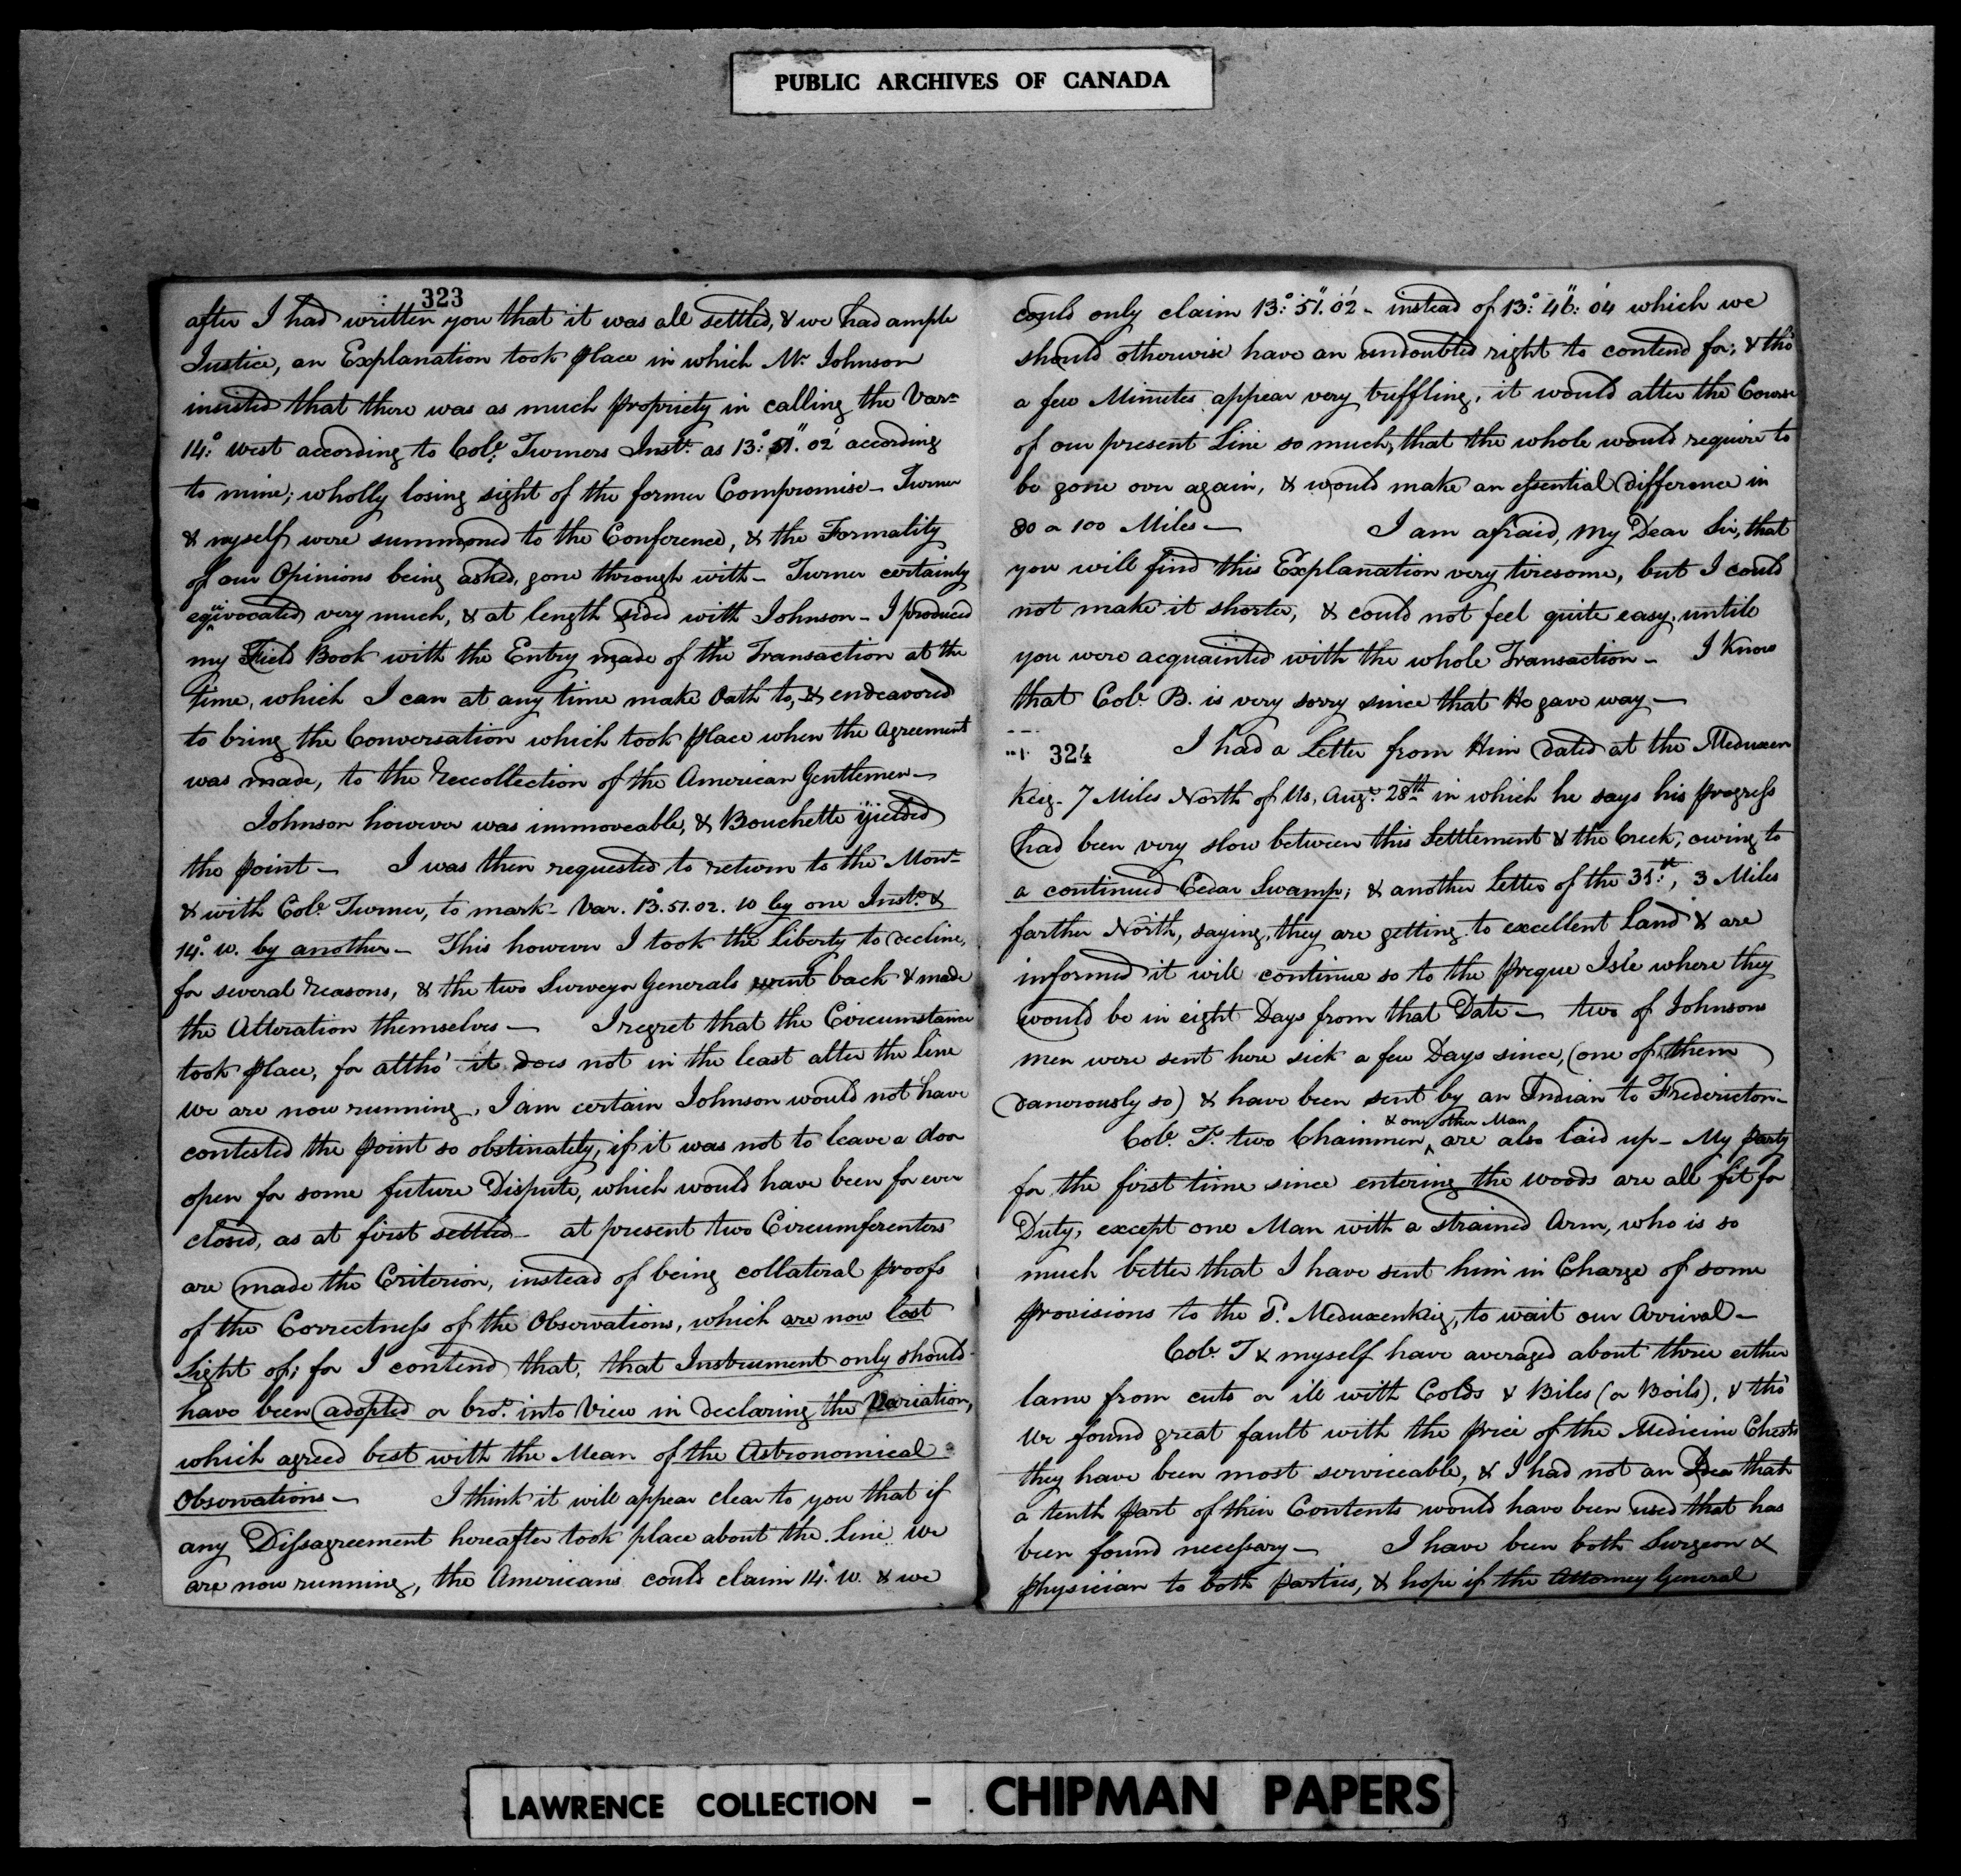 PUBLIC ARCHIVES OF CANADA
323
after I had written you that it was all settled, & we had ample
Justice, an Explanation took place in which Mr. Johnson
insisted that there was as much propriety in calling the Varn
14°: west according to Col: Turners Inst: as 13:° 51." 02' according
to mine; wholly losing sight of the former Compromise - Turner
& myself were summoned to the Conference, & the Formality
of our Opinions being asked, gone through with - Turner certainly
equivocated very much, & at length sided with Johnson - I produced
my Field Book with the Entry made of the Transaction at the
time, which I can at any time make Oath to, & endeavored
to bring the Conversation which took place when the Agreement
was made, to the reccollection of the American Gentlemen -
Johnson however was immoveable, & Bouchette yielded
the point - I was then requested to return to the Mont
& with Col: Turner, to mark - Var. 13.° 51. 02. W by one Inst: &
14.° W. by another - This however I took the liberty to decline,
for several reasons, & the two Surveyor Generals went back & made
the Alteration themselves - I regret that the Circumstance
took place, for altho' it does not in the least alter the line
we are now running, I am certain Johnson would not have
contested the point so obstinately, if it was not to leave a door
open for some future Dispute, which would have been for ever
closed, as at first settled - at present two Circumferenters
are made the Criterion, instead of being collateral proofs
of the Correctness of the Observations, which are now lost
sight of; for I contend that, that Instrument only should
have been adopted or bro:t into View in declaring the Variation,
which agreed best with the Mean of the Astronomical
Observations - I think it will appear clear to you that if
any Dissagreement hereafter took place about the Line we
are now running, the Americans could claim 14.° W. & we
could only claim 13:° 51." 02' - instead of 13:° 46": 04 which we
should otherwise have an undoubted right to contend for; & tho'
a few Minutes appear very truffling, it would alter the Course
of our present Line so much, that the whole would require to
be gone over again, & would make an essential difference in
80 a 100 Miles - I am afraid, my Dear Sir, that
you will find this Explanation very tiresome, but I could
not make it shorter, & could not feel quite easy until
you were acquainted with the whole Transaction - I know
that Col: B. is very sorry since that He gave way -
324 I had a Letter from Him dated at the Meduxen
Keig - 7 Miles North of Us, Augt. 28th in which he says his progress
had been very slow between this Settlement & the Creek, owing to
a continued Cedar Swamp; & another letter of the 31:st, 3 Miles
farther North, saying, they are getting to excellent Land & are
informed it will continue so to the Preque Isle where they
would be in eight Days from that Date - two of Johnsons
men were sent here sick a few Days since, (one of them
danerously so) & have been sent by an Indian to Fredericton -
& one other Man
Col: T: two Chainmen ^ are also laid up - My party
for the first time since entering the woods are all fit for
Duty, except one Man with a strained Arm, who is so
much better that I have sent him in Charge of some
provisions to the P. Meduxenkeig, to wait our Arrival -
Col: T & myself have averaged about three either
lame from cuts or ill with Colds & Biles (or Boils), & tho'
we found great fault with the price of the Medicine Chests
they have been most serviceable, & I had not an Idea that
a tenth part of their Contents would have been used that has
been found necessary - I have been both Surgeon &
physician to both parties, & hope if the Attorney General
LAWRENCE COLLECTION - CHIPMAN PAPERS